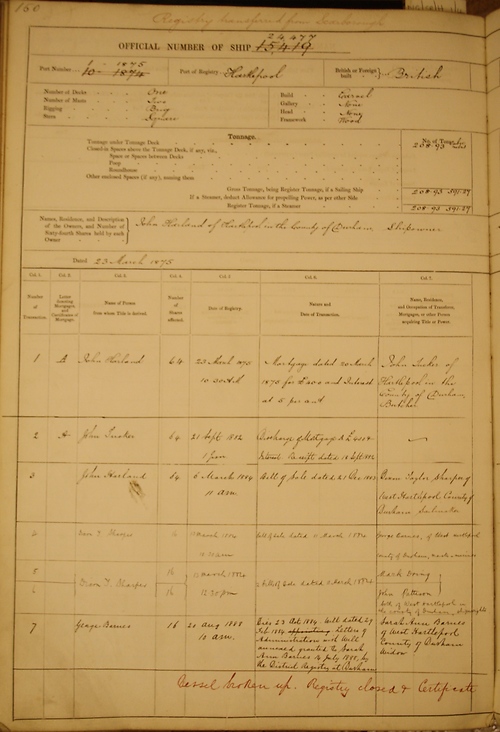 160
Registry transferred from Scarborough
24,477
OFFICIAL NUMBER OF SHIP 15,419
Port Number 1 - 1875
10 - 1874
Port of Registry Hartlepool
British or Foreign built British
Number of Decks One
Number of Masts Two
Rigging Brig
Stern Square
Build Carvel
Gallery None
Head None
Framework Wood
Tonnage.
No. of Tons
Tonnage under Tonnage Deck 208.93
Closed-in Spaces above the Tonnage Deck, if any, viz.,
Space or Spaces between Decks
Poop
Roundhouse
Other enclosed Spaces (if any), naming them
Gross Tonnage, being Register Tonnage, if a Sailing Ship 208.93 591.27
If a Steamer, deduct Allowance for propelling Power, as per other Side
Register Tonnage, if a Steamer 208.93 591.27
Names, Residence, and Description of the Owners, and Number of Sixty-fourth Shares held by each Owner
John Harland of Hartlepool in the County of Durham Shipowner
Dated 23 March 1875
Col. 1. Col. 2. Col. 3. Col. 4. Col. 5. Col. 6. Col. 7.
Number of Transaction.
Letter denoting Mortgages and Certificates of Mortgage.
Name of Person from whom Title is derived.
Number of Shares affected.
Date of Registry.
Nature and Date of Transaction.
Name, Residence, and Occupation of Transferee, Mortgagee, or other Person acquiring Title or Power.
1 A John Harland 64 23 March 1875
10.30 AM
Mortgage dated 20 March
1875 for £400 and Interest
at 5 per cent
John Tucker of
Hartlepool in the
County of Durham
Butcher
2 A John Tucker 64 21 Sept 1882
1 pm
Discharge of Mortgage A
Interest Receipt dated 18 Sept 1882
3 John Harland 64 6 March 1884
11 am.
Bill of Sale dated 21 Dec 1883
Taylor Sharper of
West Hartlepool County of
Durham Sailmaker
4 T. Sharper 16 March 1884
Bill of Sale dated 11 March 1884
George Barnes, of West Hartlepool
County of Durham,
5 16 March 1884
Mark Young
T. Sharper
2 Bills of Sale dated March 1884
6 16 12.30 pm
John
both of West Hartlepool in
the County of Durham,
7 George Barnes 16 20 Aug 1888
10 am.
Died 23 Oct 1884. Will dated 29
Feb 1884 Letters of
Administration with Will
annexed granted to Sarah
Ann Barnes 14 July 1888, by
the District Registry at Durham
Sarah Ann Barnes
of West Hartlepool
County of Durham
Widow
Vessel broken up. Registry closed & Certificate